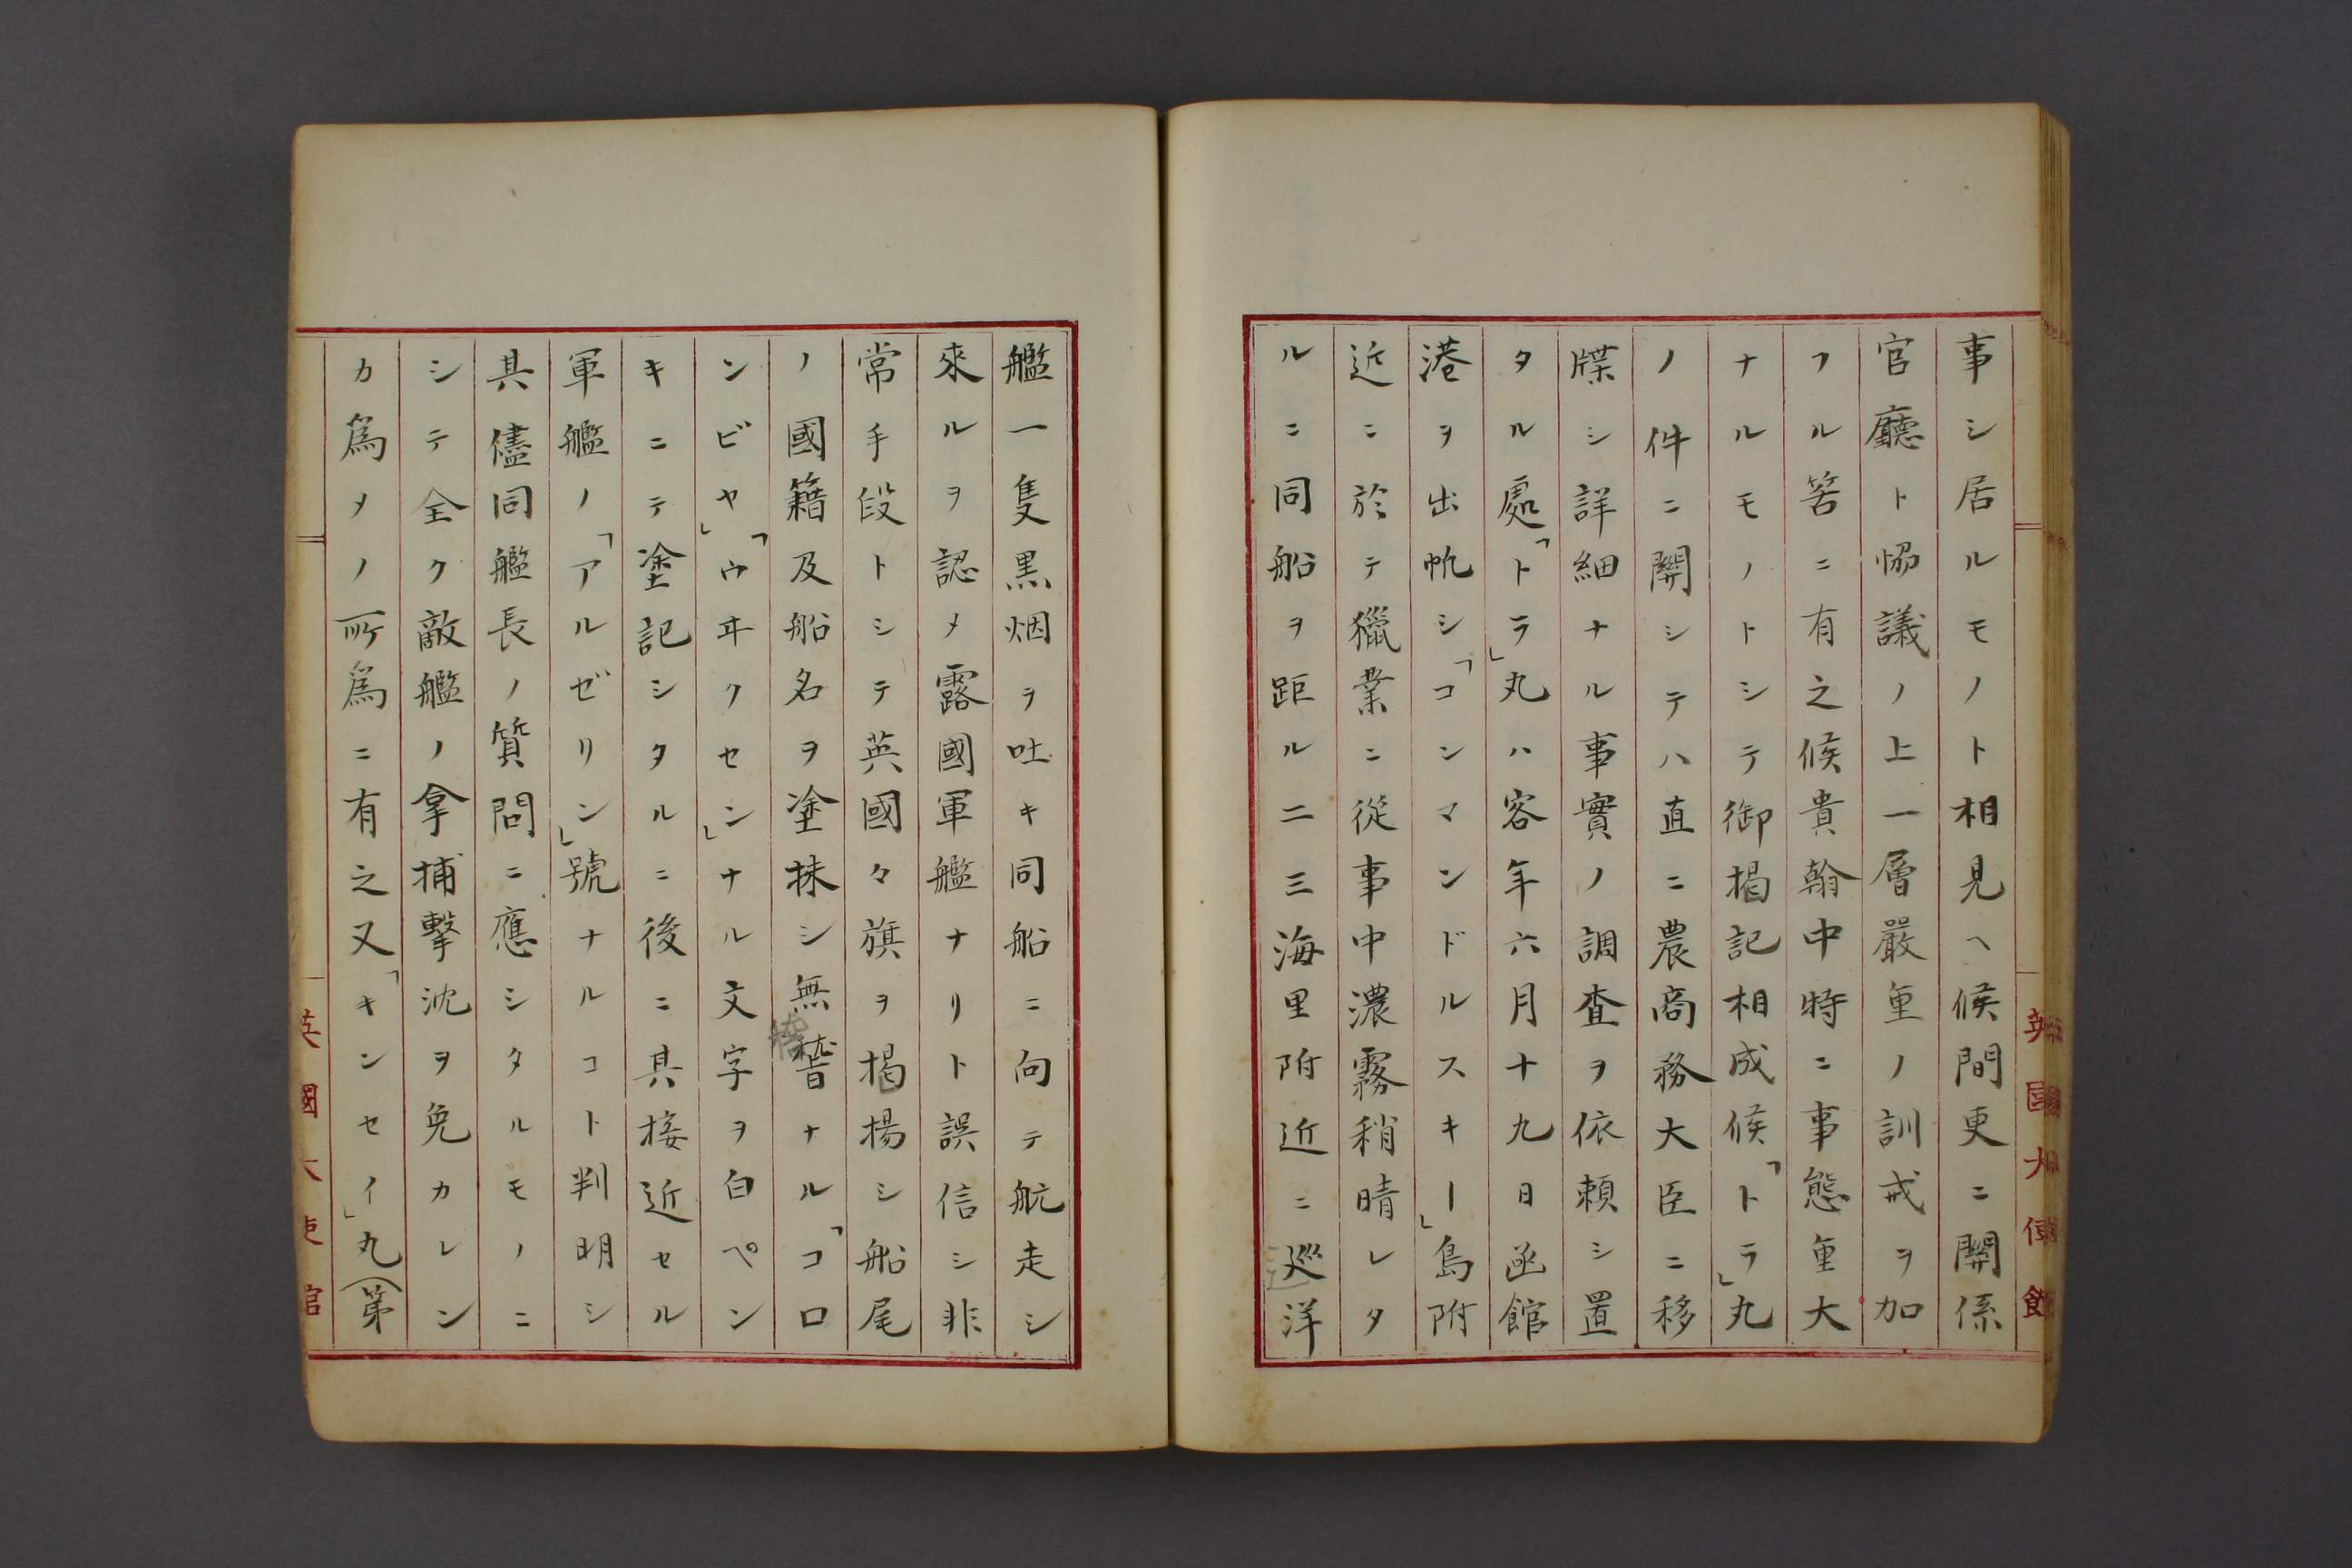 事シ居ルモノト相見ヘ候間更ニ關係
官廳ト恊議ノ上一層嚴重ノ訓戒ヲ加
フル筈ニ有之候貴翰中特ニ事態重大
ナルモノトシテ御揭記相成候「トラ」丸
ノ件ニ關シテハ直ニ農商務大臣ニ移
牒シ詳細ナル事實ノ調查ヲ依賴シ置
タル處「トラ」丸ハ客年六月十九日函館
港ヲ出帆シ「コンマンドルスキー」島附
近ニ於テ獵業ニ從事中濃霧稍晴レタ
ルニ同船ヲ距ル二三海里附近ニ巡洋
艦一隻黑烟ヲ吐キ同船ニ向テ航走シ
來ルヲ認メ露國軍艦ナリト誤信シ非
常手段トシテ英國々旗ヲ揭揚シ船尾
ノ國籍及船名ヲ塗抹シ無稽ナル「コロ
ンビヤ」「ウヰクセン」ナル文字ヲ白ペン
キニテ塗記シタルニ後ニ其接近セル
軍艦ノ「アルゼリン」號ナルコト判明シ
其儘同艦長ノ質問ニ應シタルモノニ
シテ全ク敵艦ノ拿捕擊沈ヲ免カレン
カ爲メノ所爲ニ有之又「キンセイ」丸(第
英國大使館